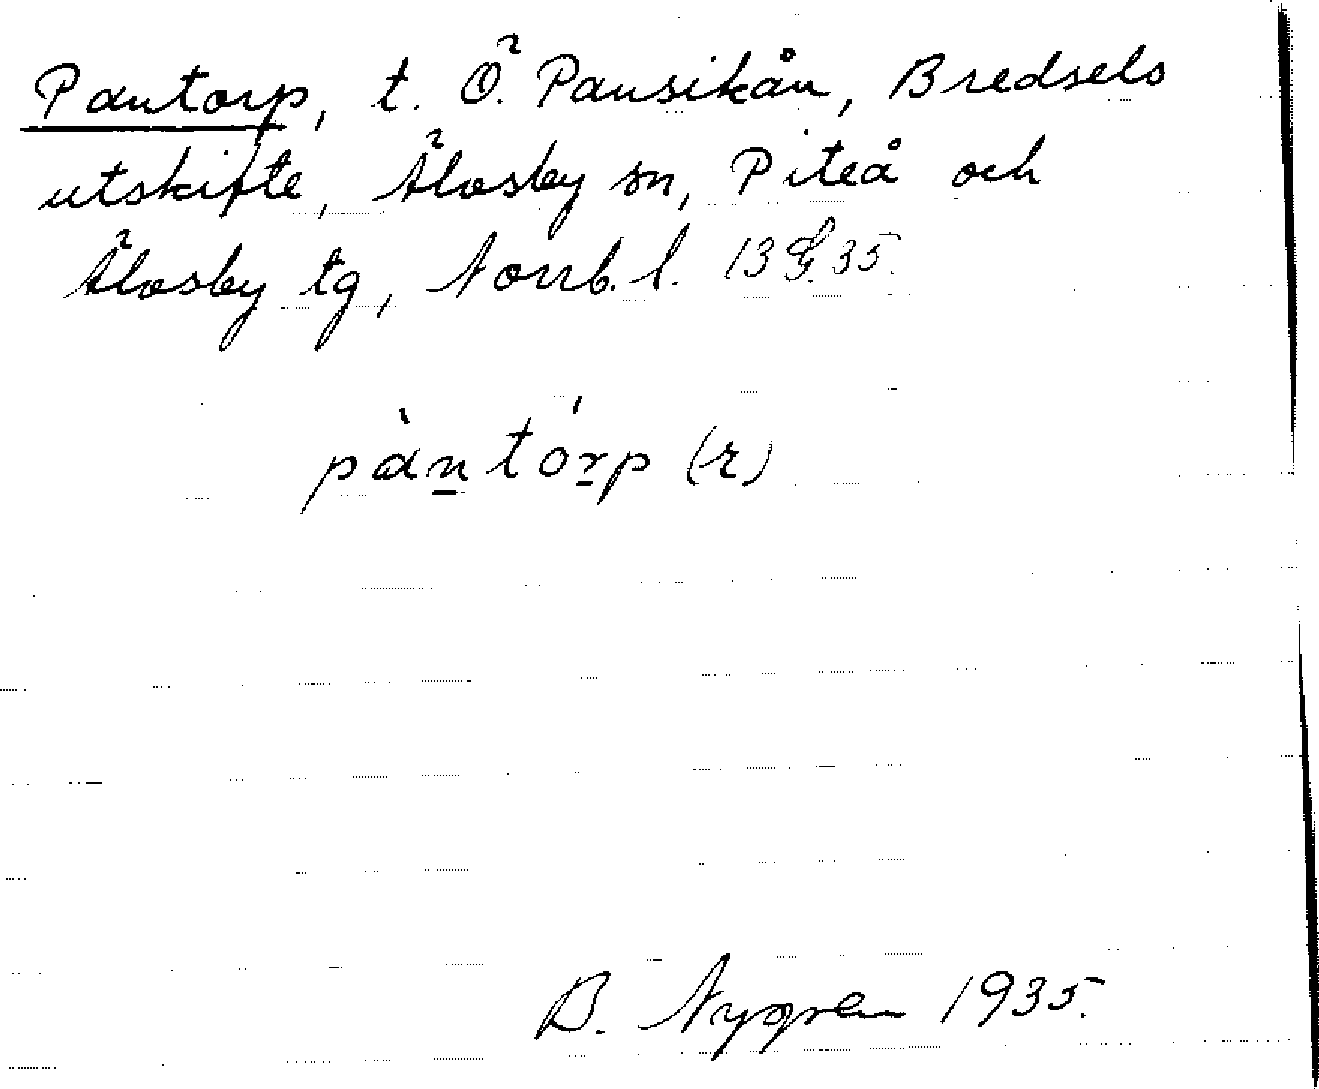 Pantorp, t. Ö. Pansikån, Bredsels
utskifte, Älvsby sn, Piteå och
Älvsby tg, Norrb. l. 13 G. 35.
pàntórp (r)
B. Nygren 1935.